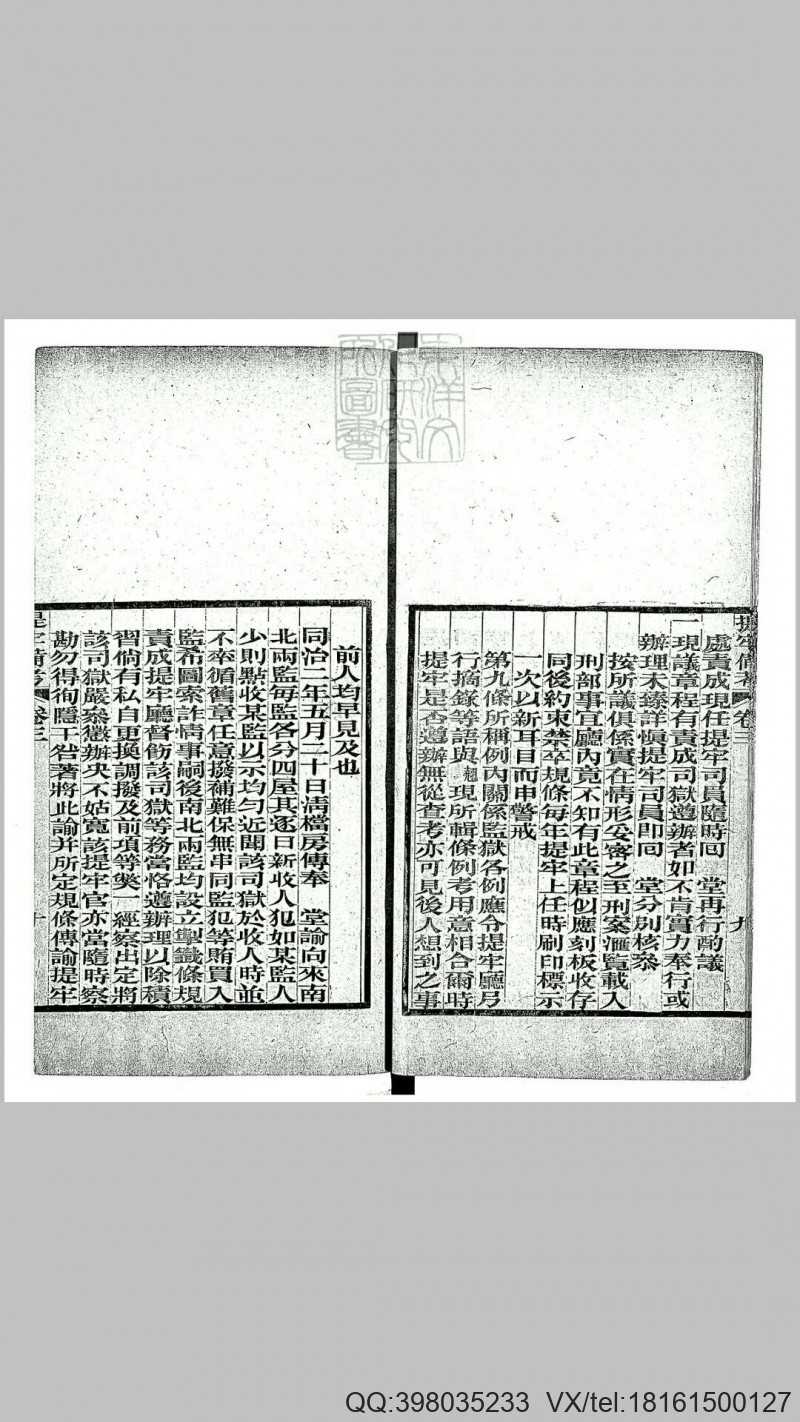 提牢備考 卷三 九
處責成現任提牢司員隨時回 堂再行酌議
一現議章程有責成司獄遵辦者如不肯實力奉行或
辦理未臻詳愼提牢司員即回 堂分别核叅
按所議俱係實在情形妥審之至刑案滙覽載入
刑部事宜廳內竟不知有此章程似應刻板收存
同後約束禁卒規條每年提牢上任時刷印標示
一次以新耳目而申警戒
第九條所稱例內關係監獄各例應令提牢廳另
行摘錄等語與翹現所輯條例考用意相合爾時
提牢是否遵辦無從查考亦可見後人想到之事
前人均早見及也
同治二年五月二十日淸檔房傳奉 堂諭向來南
北兩監每監各分四屋其逐日新收人犯如某監人
少則點收某監以示均勻近聞該司獄於收人時並
不率循舊章任意撥補難保無串同監犯等賄買入
監希圖索詐情事嗣後南北兩監均設立掣籤條規
責成提牢廳督飭該司獄等務當恪遵辦理以除積
習倘有私自更換調撥及前項等獘一經察出定將
該司獄嚴叅懲辦決不姑寬該提牢官亦當隨時察
勘勿得徇隱干咎著將此諭幷所定規條傳諭提牢
提牢備考 卷三 十
QQ:398035233 VX/tel:18161500127